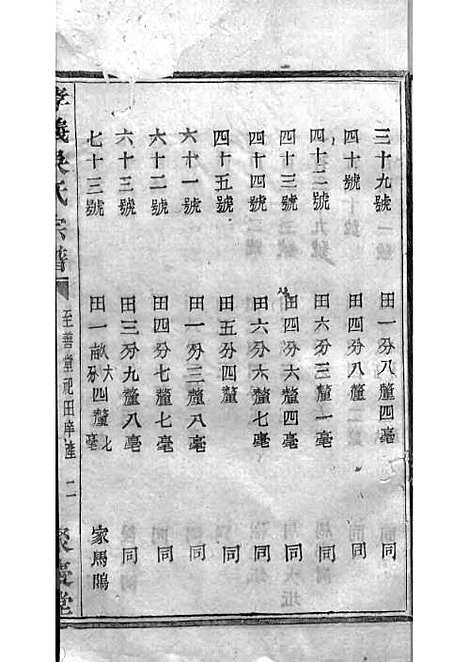 三十九號 田一分八釐四毫 同
四十號 田四分八釐 同
四十二號 田六分三釐一毫 同
四十三號 田四分六釐八毫 同
四十四號 田六分六釐七毫 同
四十五號 田五分四釐 同
六十一號 田一分三釐八毫 同
六十二號 田四分七釐七毫 同
六十三號 田三分九釐八毫 同
七十三號 田一畝六分四釐七毫 家馬鴎
孝義吳氏宗譜 至善堂祀田 產 二 聚慶堂